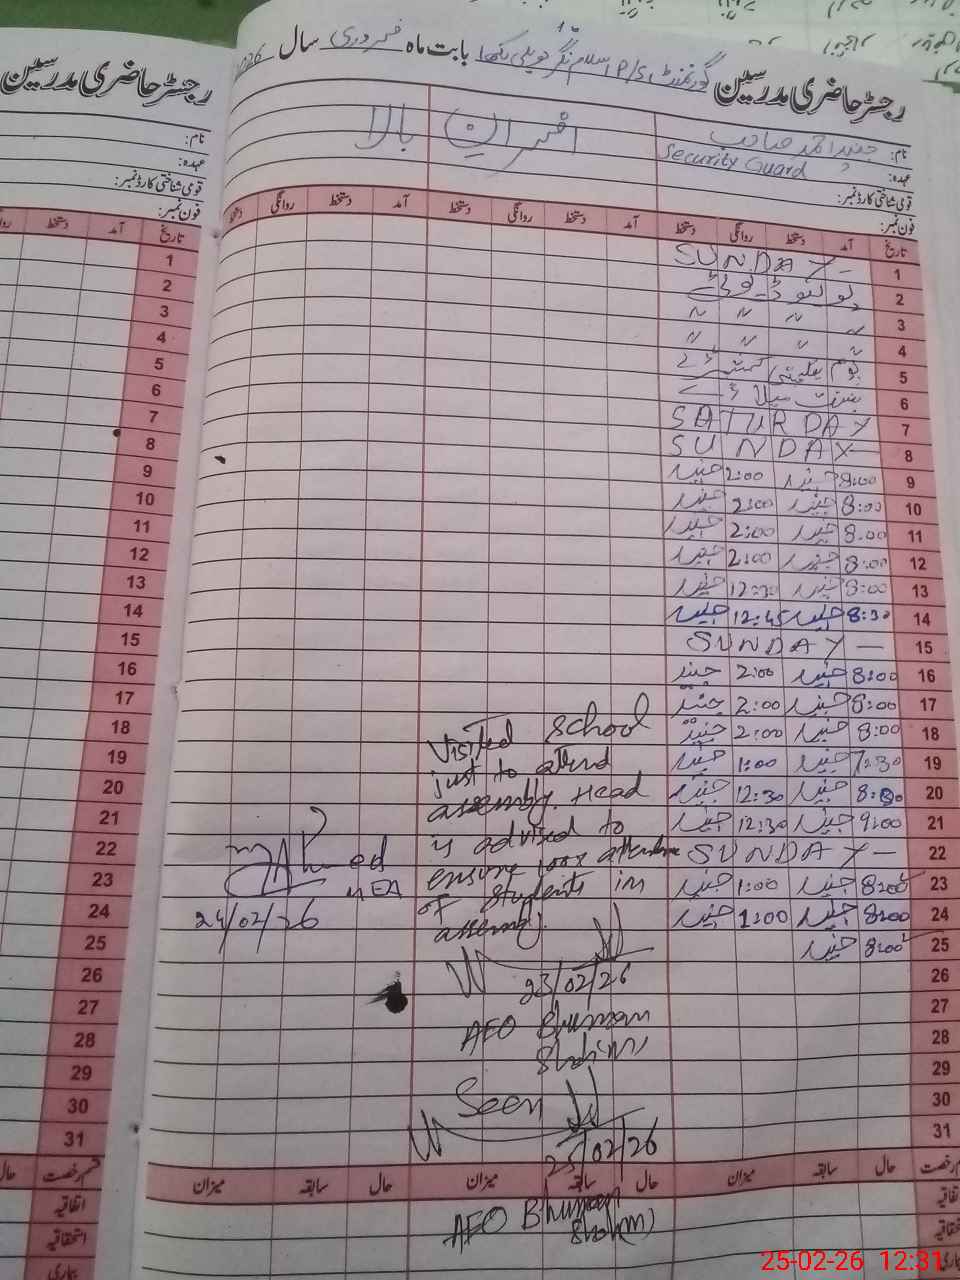 رجسٹر حاضری مدرسین گورنمنٹ P/S اسلام نگر حویلی لکھا بابت ماہ فروری سال 2026
رجسٹر حاضری مدرسین
نام: جنید احمد صاحب
افسران بالا
عہدہ: Security Guard
قومی شناختی کارڈ نمبر:
فون نمبر:
نام:
عہدہ:
قومی شناختی کارڈ نمبر:
فون نمبر:
تاریخ آمد دستخط روانگی دستخط آمد دستخط روانگی دستخط آمد دستخط روانگی دستخط
1 SUNDAY -
2 پولیو ڈیوٹی
3 〃 〃 〃 〃
4 〃 〃 〃 〃
5 یوم یکجہتی کشمیر ڈے
6 بسنت میلا ڈے
7 SATURDAY
8 SUNDAY -
9 8:00 جنید 2:00 جنید
10 8:00 جنید 2:00 جنید
11 8:00 جنید 2:00 جنید
12 8:00 جنید 2:00 جنید
13 8:00 جنید 12:30 جنید
14 8:30 جنید 12:45 جنید
15 SUNDAY -
16 8:00 جنید 2:00 جنید
17 8:00 جنید 2:00 جنید
18 8:00 جنید 2:00 جنید
19 7:30 جنید 1:00 جنید
20 8:30 جنید 12:30 جنید
21 9:00 جنید 12:30 جنید
22 SUNDAY -
23 8:00 جنید 1:00 جنید
24 8:00 جنید 1:00 جنید
25 8:00 جنید
26
27
28
29
30
31
Visited school
just to attend
assembly. Head
is advised to
ensure 100% attendance
of students in
assembly.
23/02/26
AEO Bhuman
Shah (M)
Ahmed
MEA
24/02/26
Seen
25/02/26
قسم رخصت حال سابقہ میزان حال سابقہ میزان حال سابقہ میزان
اتفاقیہ
استحقاقیہ
بیماری
AEO Bhuman
Shah (M)
تاریخ آمد دستخط
1
2
3
4
5
6
7
8
9
10
11
12
13
14
15
16
17
18
19
20
21
22
23
24
25
26
27
28
29
30
31
قسم رخصت حال
اتفاقیہ
استحقاقیہ
بیماری
25-02-26 12:31